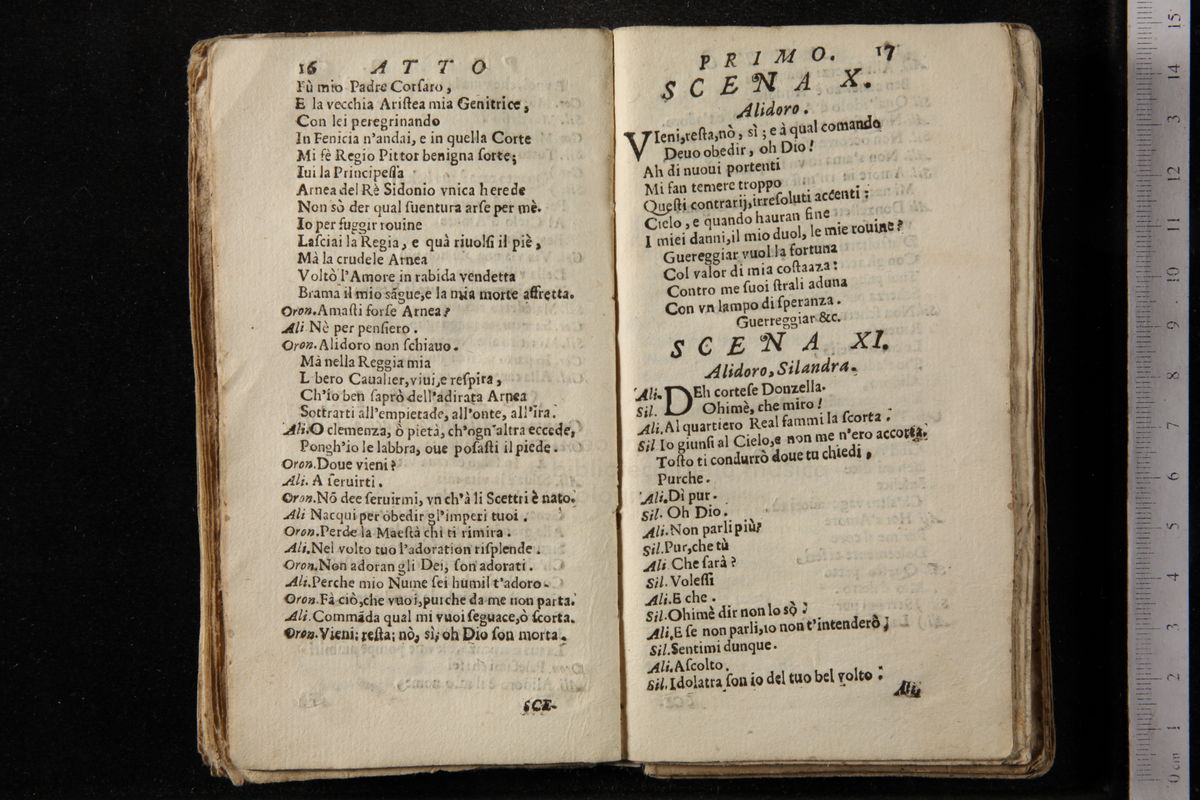 16 ATTO
Fù mio Padre Corſaro,
E la vecchia Ariſtea mia Genitrice,
Con lei peregrinando
In Fenicia n'andai, e in quella Corte
Mi fè Regio Pittor benigna ſorte;
Iui la Principeſſa
Arnea del Rè Sidonio vnica herede
Non sò der qual ſuentura arſe per mè.
Io per fuggir rouine
Laſciai la Regia, e quà riuolſi il piè,
Mà la crudele Arnea
Voltò l'Amore in rabida vendetta
Brama il mio sãgue,e la mia morte affretta.
Oron.Amaſti forſe Arnea?
Ali Nè per penſiero.
Oron.Alidoro non ſchiauo.
Mà nella Reggia mia
L bero Caualier,viui,e reſpira,
Ch'io ben ſaprò dell'adirata Arnea
Sottrarti all'empietade, all'onte, all'ira.
Ali.O clemenza, ò pietà, ch'ogn'altra eccede,
Pongh'io le labbra, oue poſaſti il piede.
Oron.Doue vieni?
Ali. A ſeruirti.
Oron.Nõ dee ſeruirmi, vn ch'à li Scettri è nato.
Ali Nacqui per obedir gl'imperi tuoi.
Oron.Perde la Maeſtà chi ti rimira.
Ali.Nel volto tuo l'adoration riſplende.
Oron.Non adoran gli Dei, ſon adorati.
Ali.Perche mio Nume ſei humil t'adoro.
Oron.Fà ciò,che vuoi,purche da me non parta.
Ali.Commãda qual mi vuoi ſeguace,ò ſcorta.
Oron.Vieni; reſta; nò, sì, oh Dio ſon morta.
SCE-
PRIMO. 17
SCENA X.
Alidoro.
VIeni,reſta,nò, sì; e à qual comando
Deuo obedir, oh Dio!
Ah di nuoui portenti
Mi fan temere troppo
Queſti contrarij,irreſoluti accenti;
Cielo, e quando hauran fine
I miei danni,il mio duol, le mie rouine?
Guereggiar vuol la fortuna
Col valor di mia coſtaaza:
Contro me ſuoi ſtrali aduna
Con vn lampo di ſperanza.
Guerreggiar &c.
SCENA XI.
Alidoro, Silandra.
Ali. DEh corteſe Donzella.
Sil. Ohimè, che miro!
Ali.Al quartiero Real fammi la ſcorta.
Sil Io giunſi al Cielo,e non me n'ero accorta.
Toſto ti condurrò doue tu chiedi,
Purche.
Ali.Dì pur.
Sil. Oh Dio.
Ali.Non parli più?
Sil.Pur,che tù
Ali Che ſarà?
Sil.Voleſſi
Ali.E che.
Sil.Ohimè dir non lo sò;
Ali.E ſe non parli,io non t'intenderò;
Sil.Sentimi dunque.
Ali.Aſcolto.
Sil.Idolatra ſon io del tuo bel volto:
Ali,